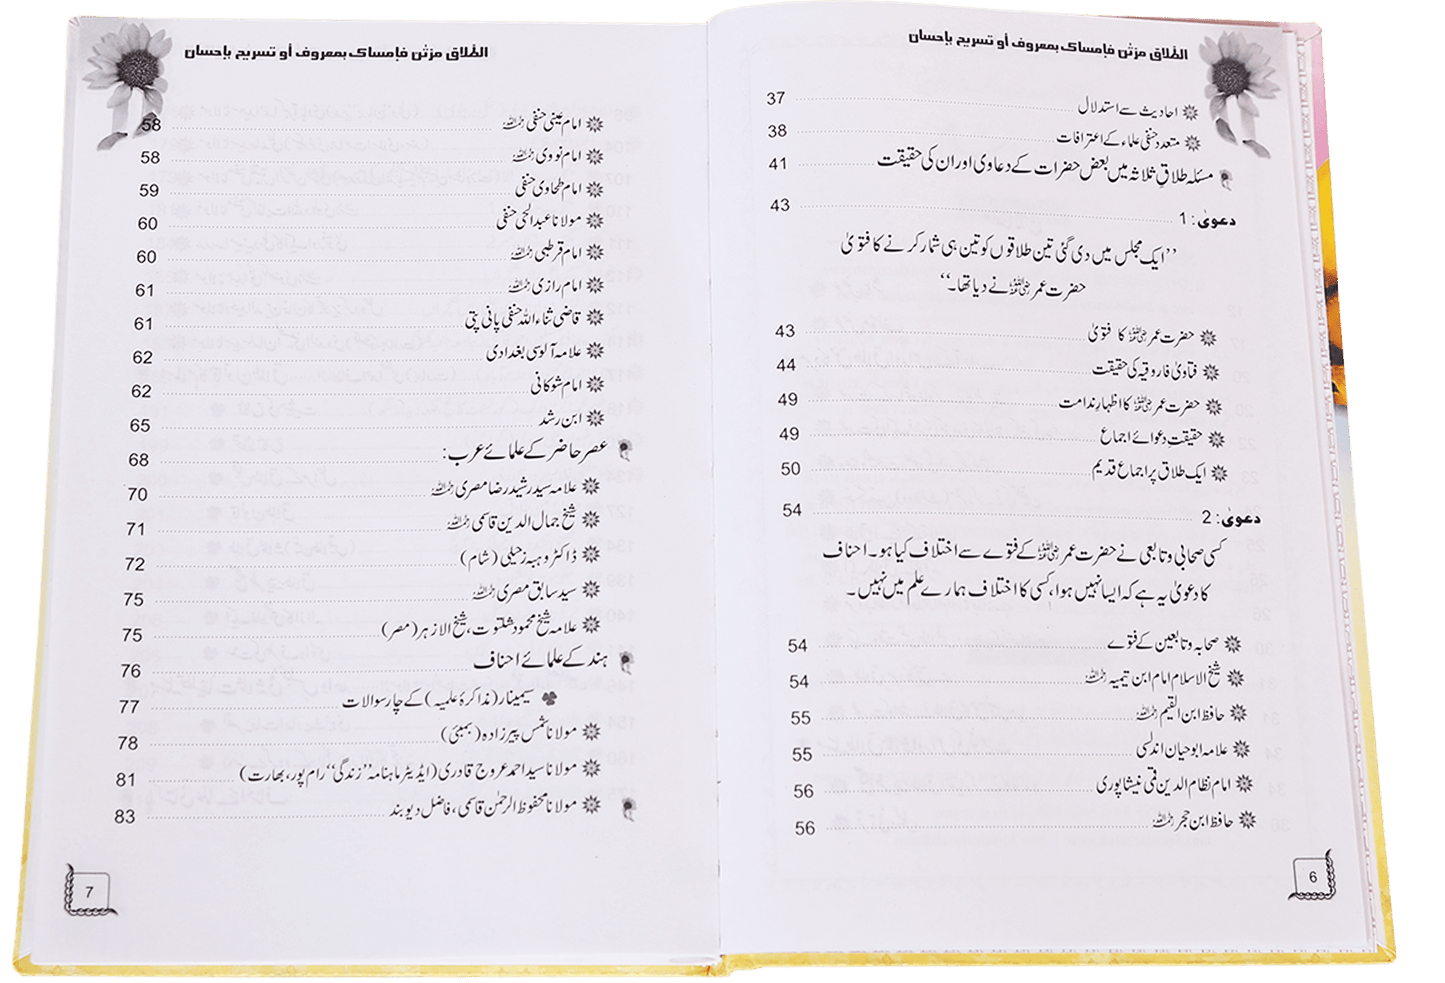 الطلاق مرتٰن فإمساك بمعروف أو تسريح بإحسان
احادیث سے استدلال 37
متعدد حنفی علماء کے اعترافات 38
مسئلہ طلاقِ ثلاثہ میں بعض حضرات کے دعاوی اور ان کی حقیقت 41
دعویٰ: 1 43
’’ایک مجلس میں دی گئی تین طلاقوں کو تین ہی شمار کرنے کا فتویٰ
حضرت عمر رضی اللہ عنہ نے دیا تھا۔‘‘
حضرت عمر رضی اللہ عنہ کا فتویٰ 43
فتاویٰ فاروقیہ کی حقیقت 44
حضرت عمر رضی اللہ عنہ کا اظہارِ ندامت 49
حقیقتِ دعوائے اجماع 49
ایک طلاق پر اجماع قدیم 50
دعویٰ: 2 54
کسی صحابی و تابعی نے حضرت عمر رضی اللہ عنہ کے فتوے سے اختلاف کیا ہو۔ احناف
کا دعویٰ یہ ہے کہ ایسا نہیں ہوا، کسی کا اختلاف ہمارے علم میں نہیں۔
صحابہ و تابعین کے فتوے 54
شیخ الاسلام امام ابن تیمیہ رحمہ اللہ 54
حافظ ابن القیم رحمہ اللہ 55
علامہ ابوحیان اندلسی 55
امام نظام الدین قمی نیشاپوری 56
حافظ ابن حجر رحمہ اللہ 56
6
الطلاق مرتٰن فإمساك بمعروف أو تسريح بإحسان
امام عینی حنفی رحمہ اللہ 58
امام نووی رحمہ اللہ 58
امام طحاوی حنفی 59
مولانا عبدالحی حنفی 60
امام قرطبی رحمہ اللہ 60
امام رازی رحمہ اللہ 61
قاضی ثناء اللہ حنفی پانی پتی 61
علامہ آلوسی بغدادی 62
امام شوکانی 62
ابن رشد 65
عصر حاضر کے علمائے عرب: 68
علامہ سید رشید رضا مصری رحمہ اللہ 70
شیخ جمال الدین قاسمی رحمہ اللہ 71
ڈاکٹر وہبہ زحیلی (شام) 72
سید سابق مصری رحمہ اللہ 75
علامہ شیخ محمود شلتوت، شیخ الازہر (مصر) 75
ہند کے علمائے احناف 76
سیمینار (مذاکرۂ علمیہ) کے چار سوالات 77
مولانا شمس پیرزادہ (بمبئی) 78
مولانا سید احمد عروج قادری (ایڈیٹر ماہنامہ ’’زندگی‘‘ رام پور، بھارت) 81
مولانا محفوظ الرحمٰن قاسمی، فاضل دیوبند 83
7